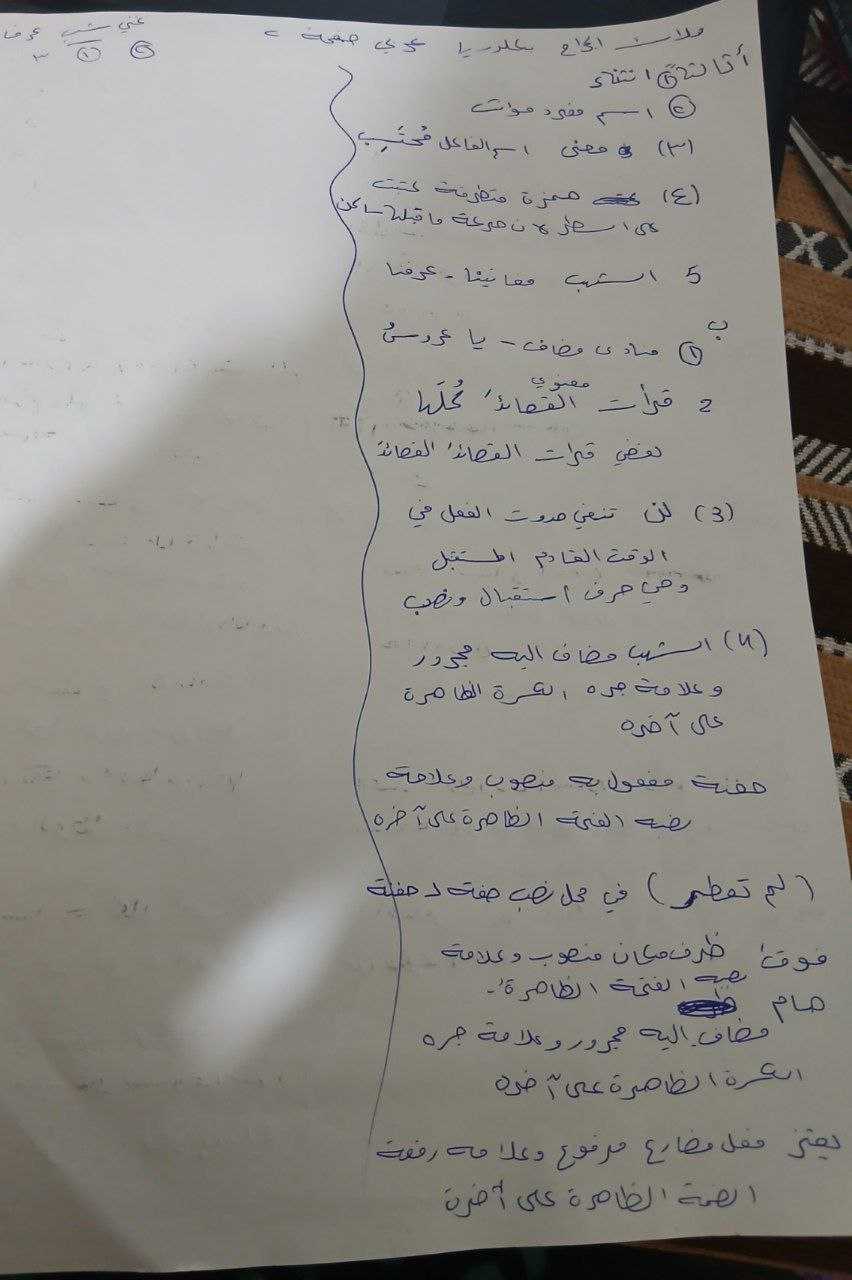 بكلوريا عربي صفحة ٢
أ ثالثاً ① انتقاء
② اسم مفرد موات
(٣) معنى اسم الفاعل مُحتَسِب
(٤) همزة متطرفة كتبت
على السطر لان حركة ما قبلها ساكن
5 الشهب معانيها - عرفنا
ب
① منادى مضاف - يا عروسُ
معنوي
2 قرأت القصائدَ كُلَّها
لفضي قرات القصائدَ القصائدَ
(3) لن تنفي حدوث الفعل في
الوقت القادم المستقبل
وهي حرف استقبال ونصب
(4) الشهب مضاف اليه مجرور
وعلامة جره الكسرة الظاهرة
على آخره
حفنة مفعول به منصوب وعلامة
نصبه الفتحة الظاهرة على آخره
(لم تعطر) في محل نصب صفة لـ حفنة
فوقَ ظرف مكان منصوب وعلامة
نصبه الفتحة الظاهرة -
هام
مضاف اليه مجرور وعلامة جره
الكسرة الظاهرة على آخره
يعتز فعل مضارع مرفوع وعلامه رفعة
الضمة الظاهرة على آخرة
غني شهب عرفنا
② ① ٣